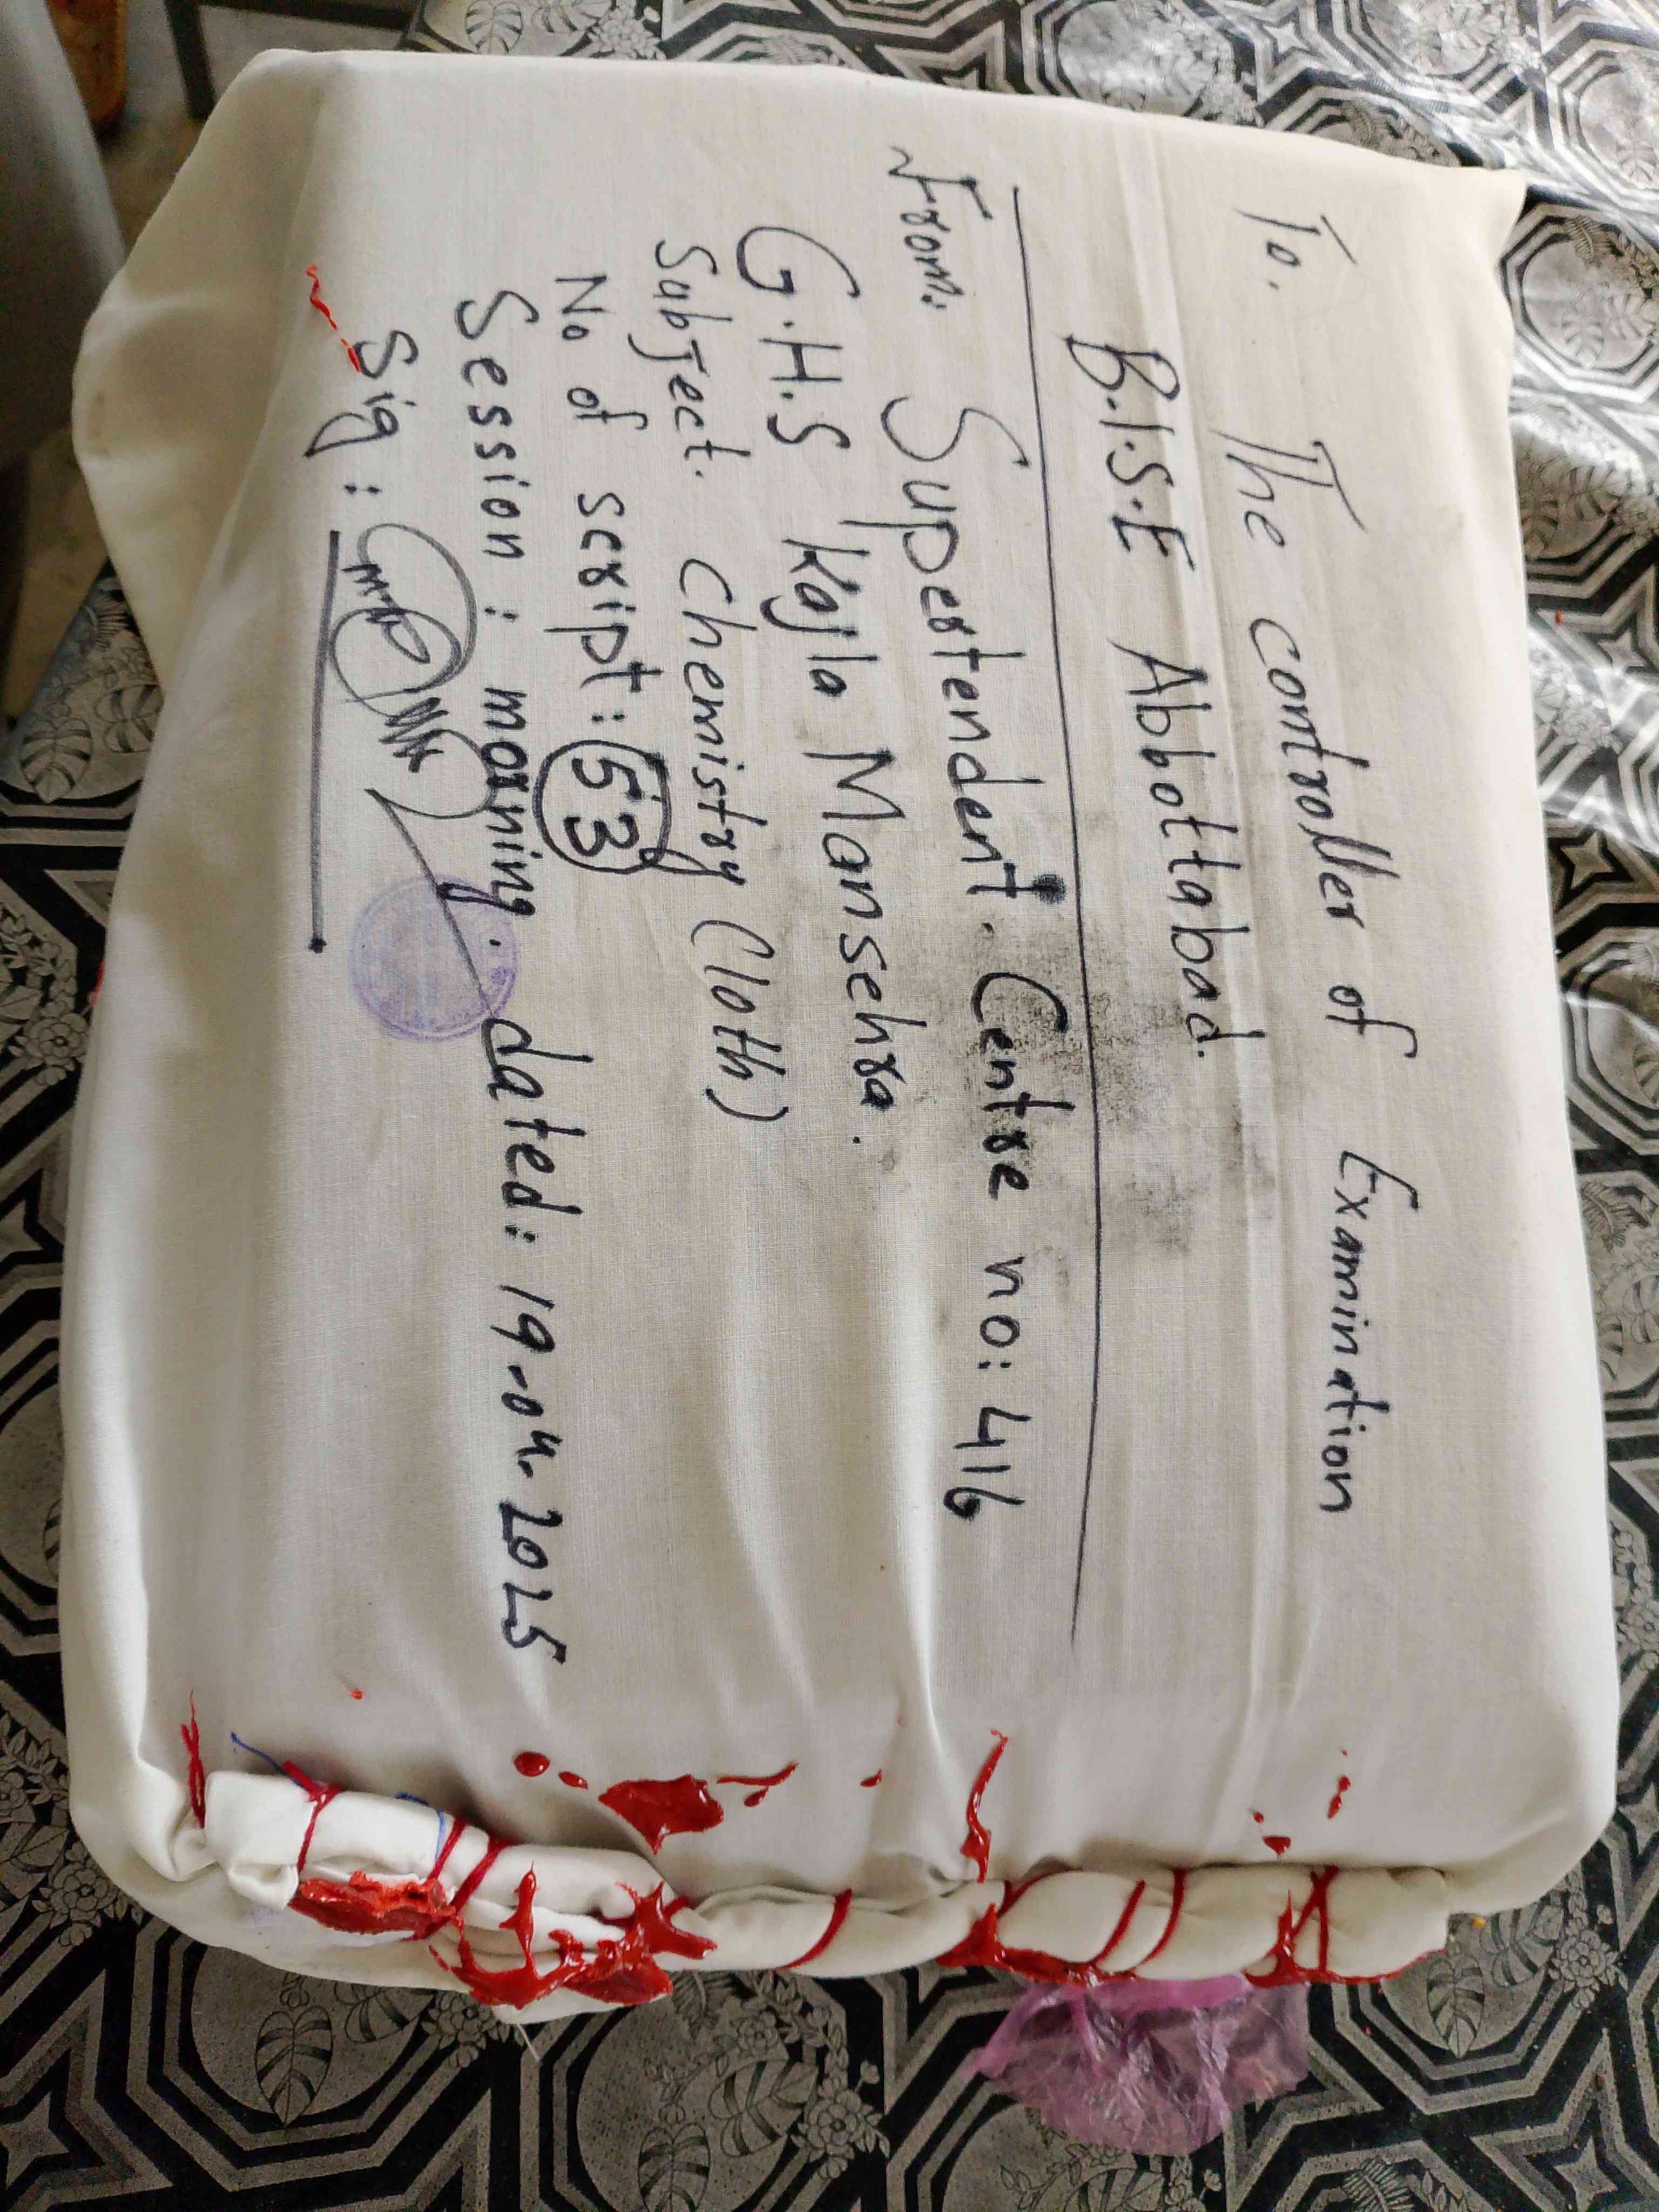 To. The controller of Examination
B.I.S.E Abbottabad.
From: Supertendent. Centre no: 416
G.H.S Kajla Mansehra.
Subject. Chemistry (loth)
No of script: 53
Session: morning. dated: 19-04-2025
Sig: